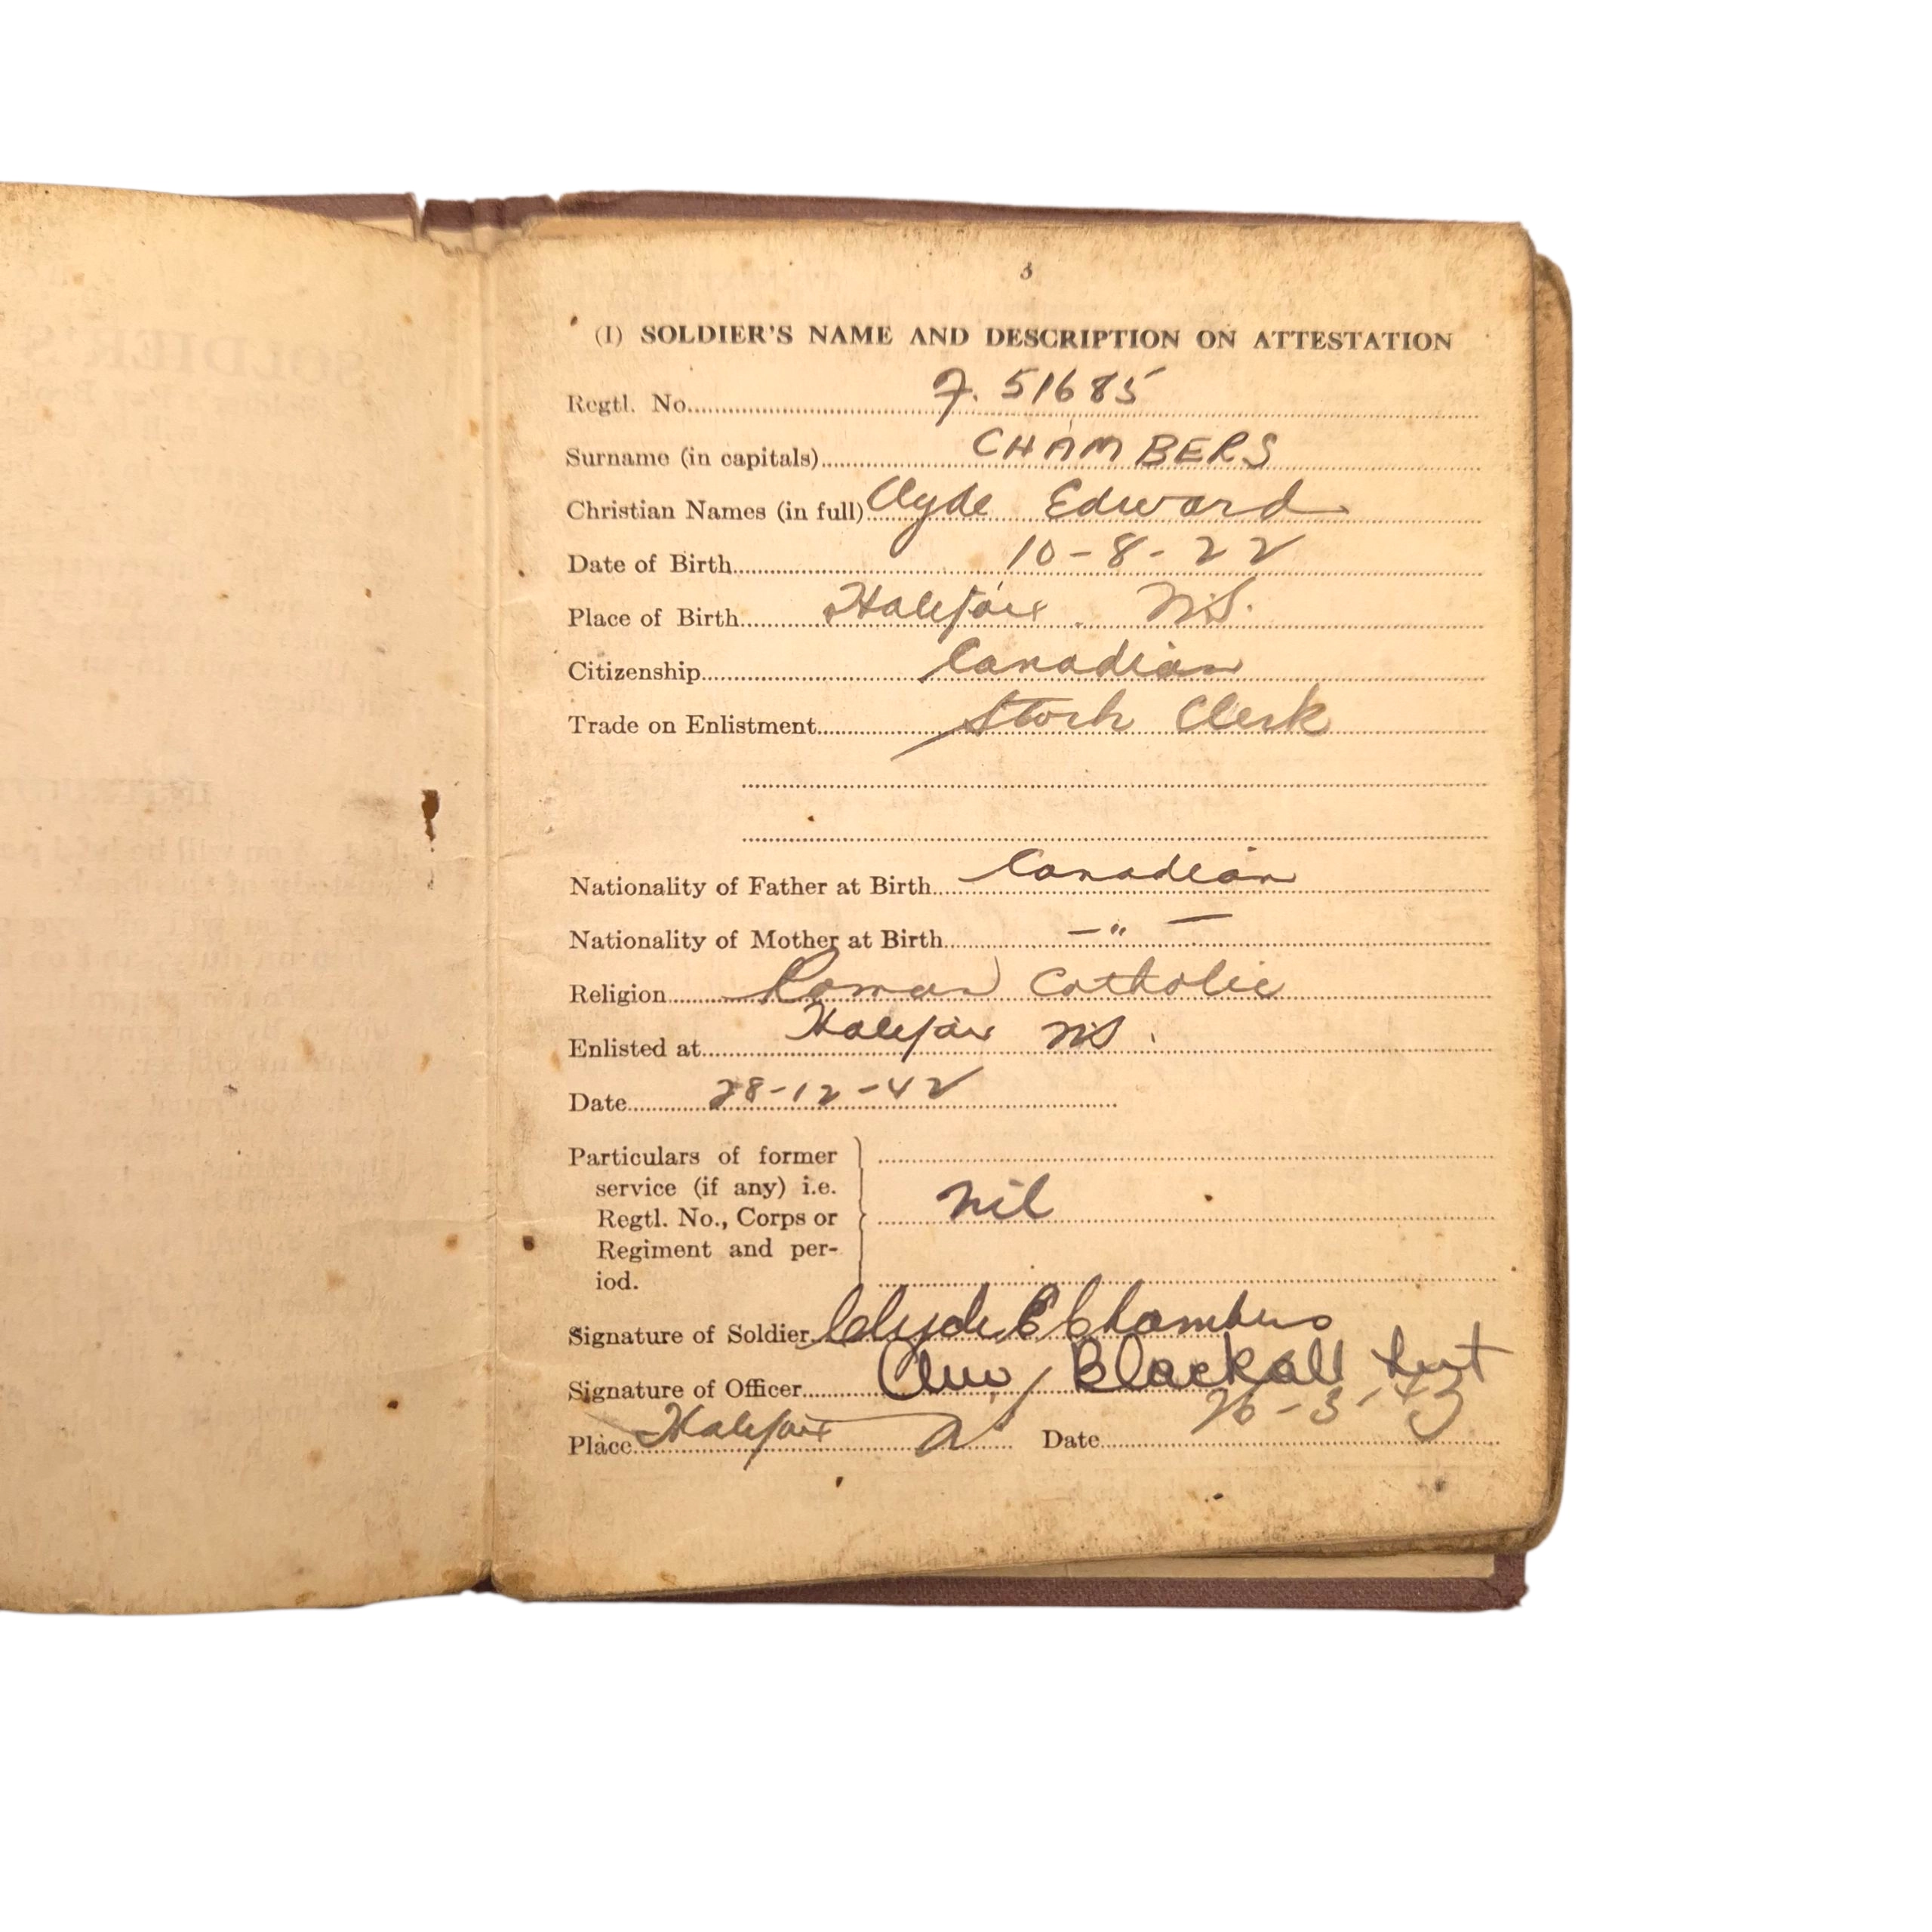 3
(I) SOLDIER'S NAME AND DESCRIPTION ON ATTESTATION
Regtl. No. F. 51685
Surname (in capitals) CHAMBERS
Christian Names (in full) Clyde Edward
Date of Birth 10-8-22
Place of Birth Halifax. N.S.
Citizenship Canadian
Trade on Enlistment Stock Clerk
Nationality of Father at Birth Canadian
Nationality of Mother at Birth —"—
Religion Roman Catholic
Enlisted at Halifax NS.
Date 28-12-42
Particulars of former
service (if any) i.e.
Regtl. No., Corps or nil
Regiment and per-
iod.
Signature of Soldier Clyde E Chambers
Signature of Officer Blackall Lieut
Place Halifax Date 26-3-43